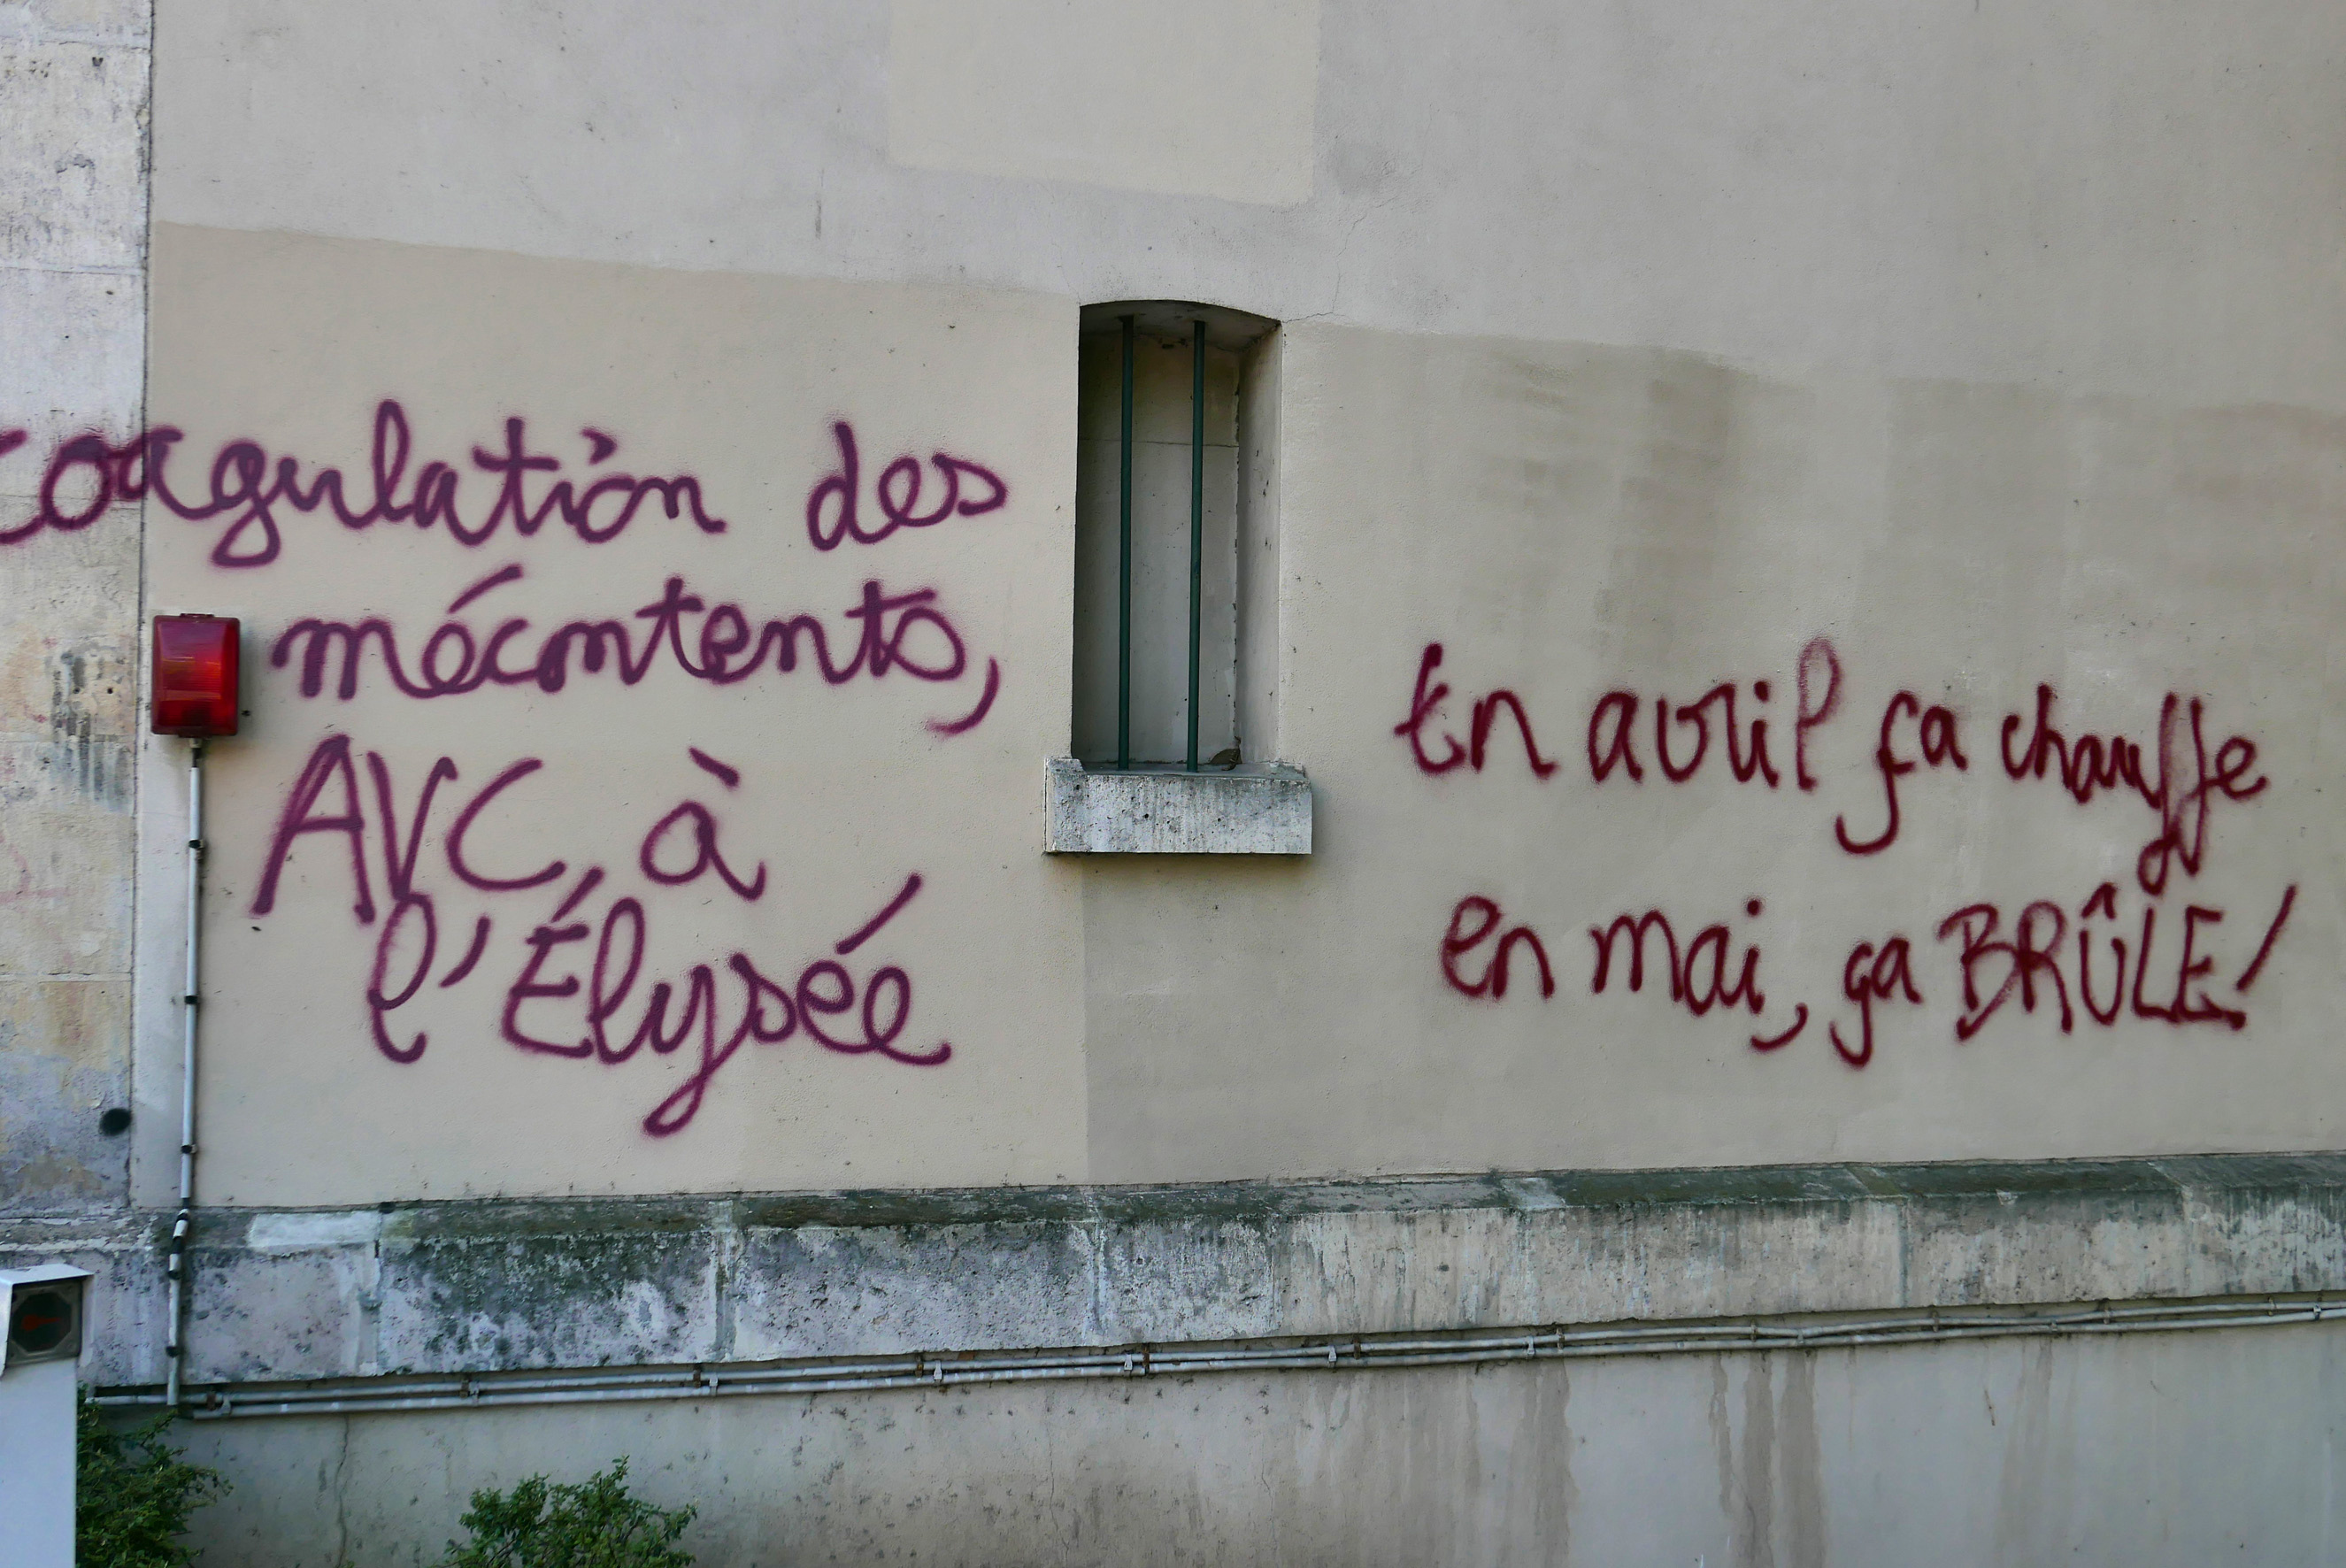 coagulation des
mécontents,
AVC à
l'Élysée
En avril ça chauffe
en mai, ça BRÛLE!